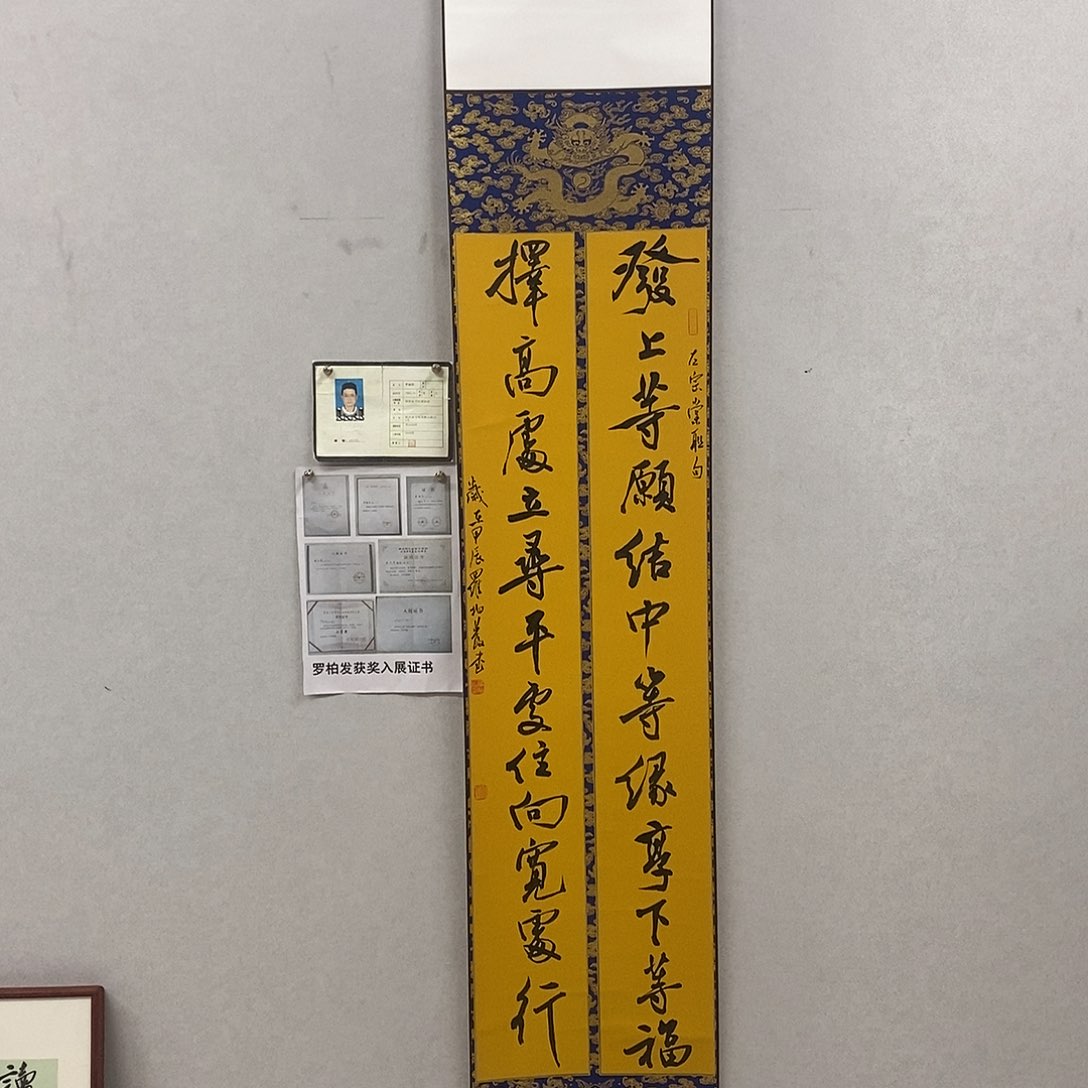 發上等願結中等缘享下等福
左宗棠聯句
擇高處立尋平處住向寬處行
歲在甲辰羅柏發書
罗柏发获奖入展证书
讀